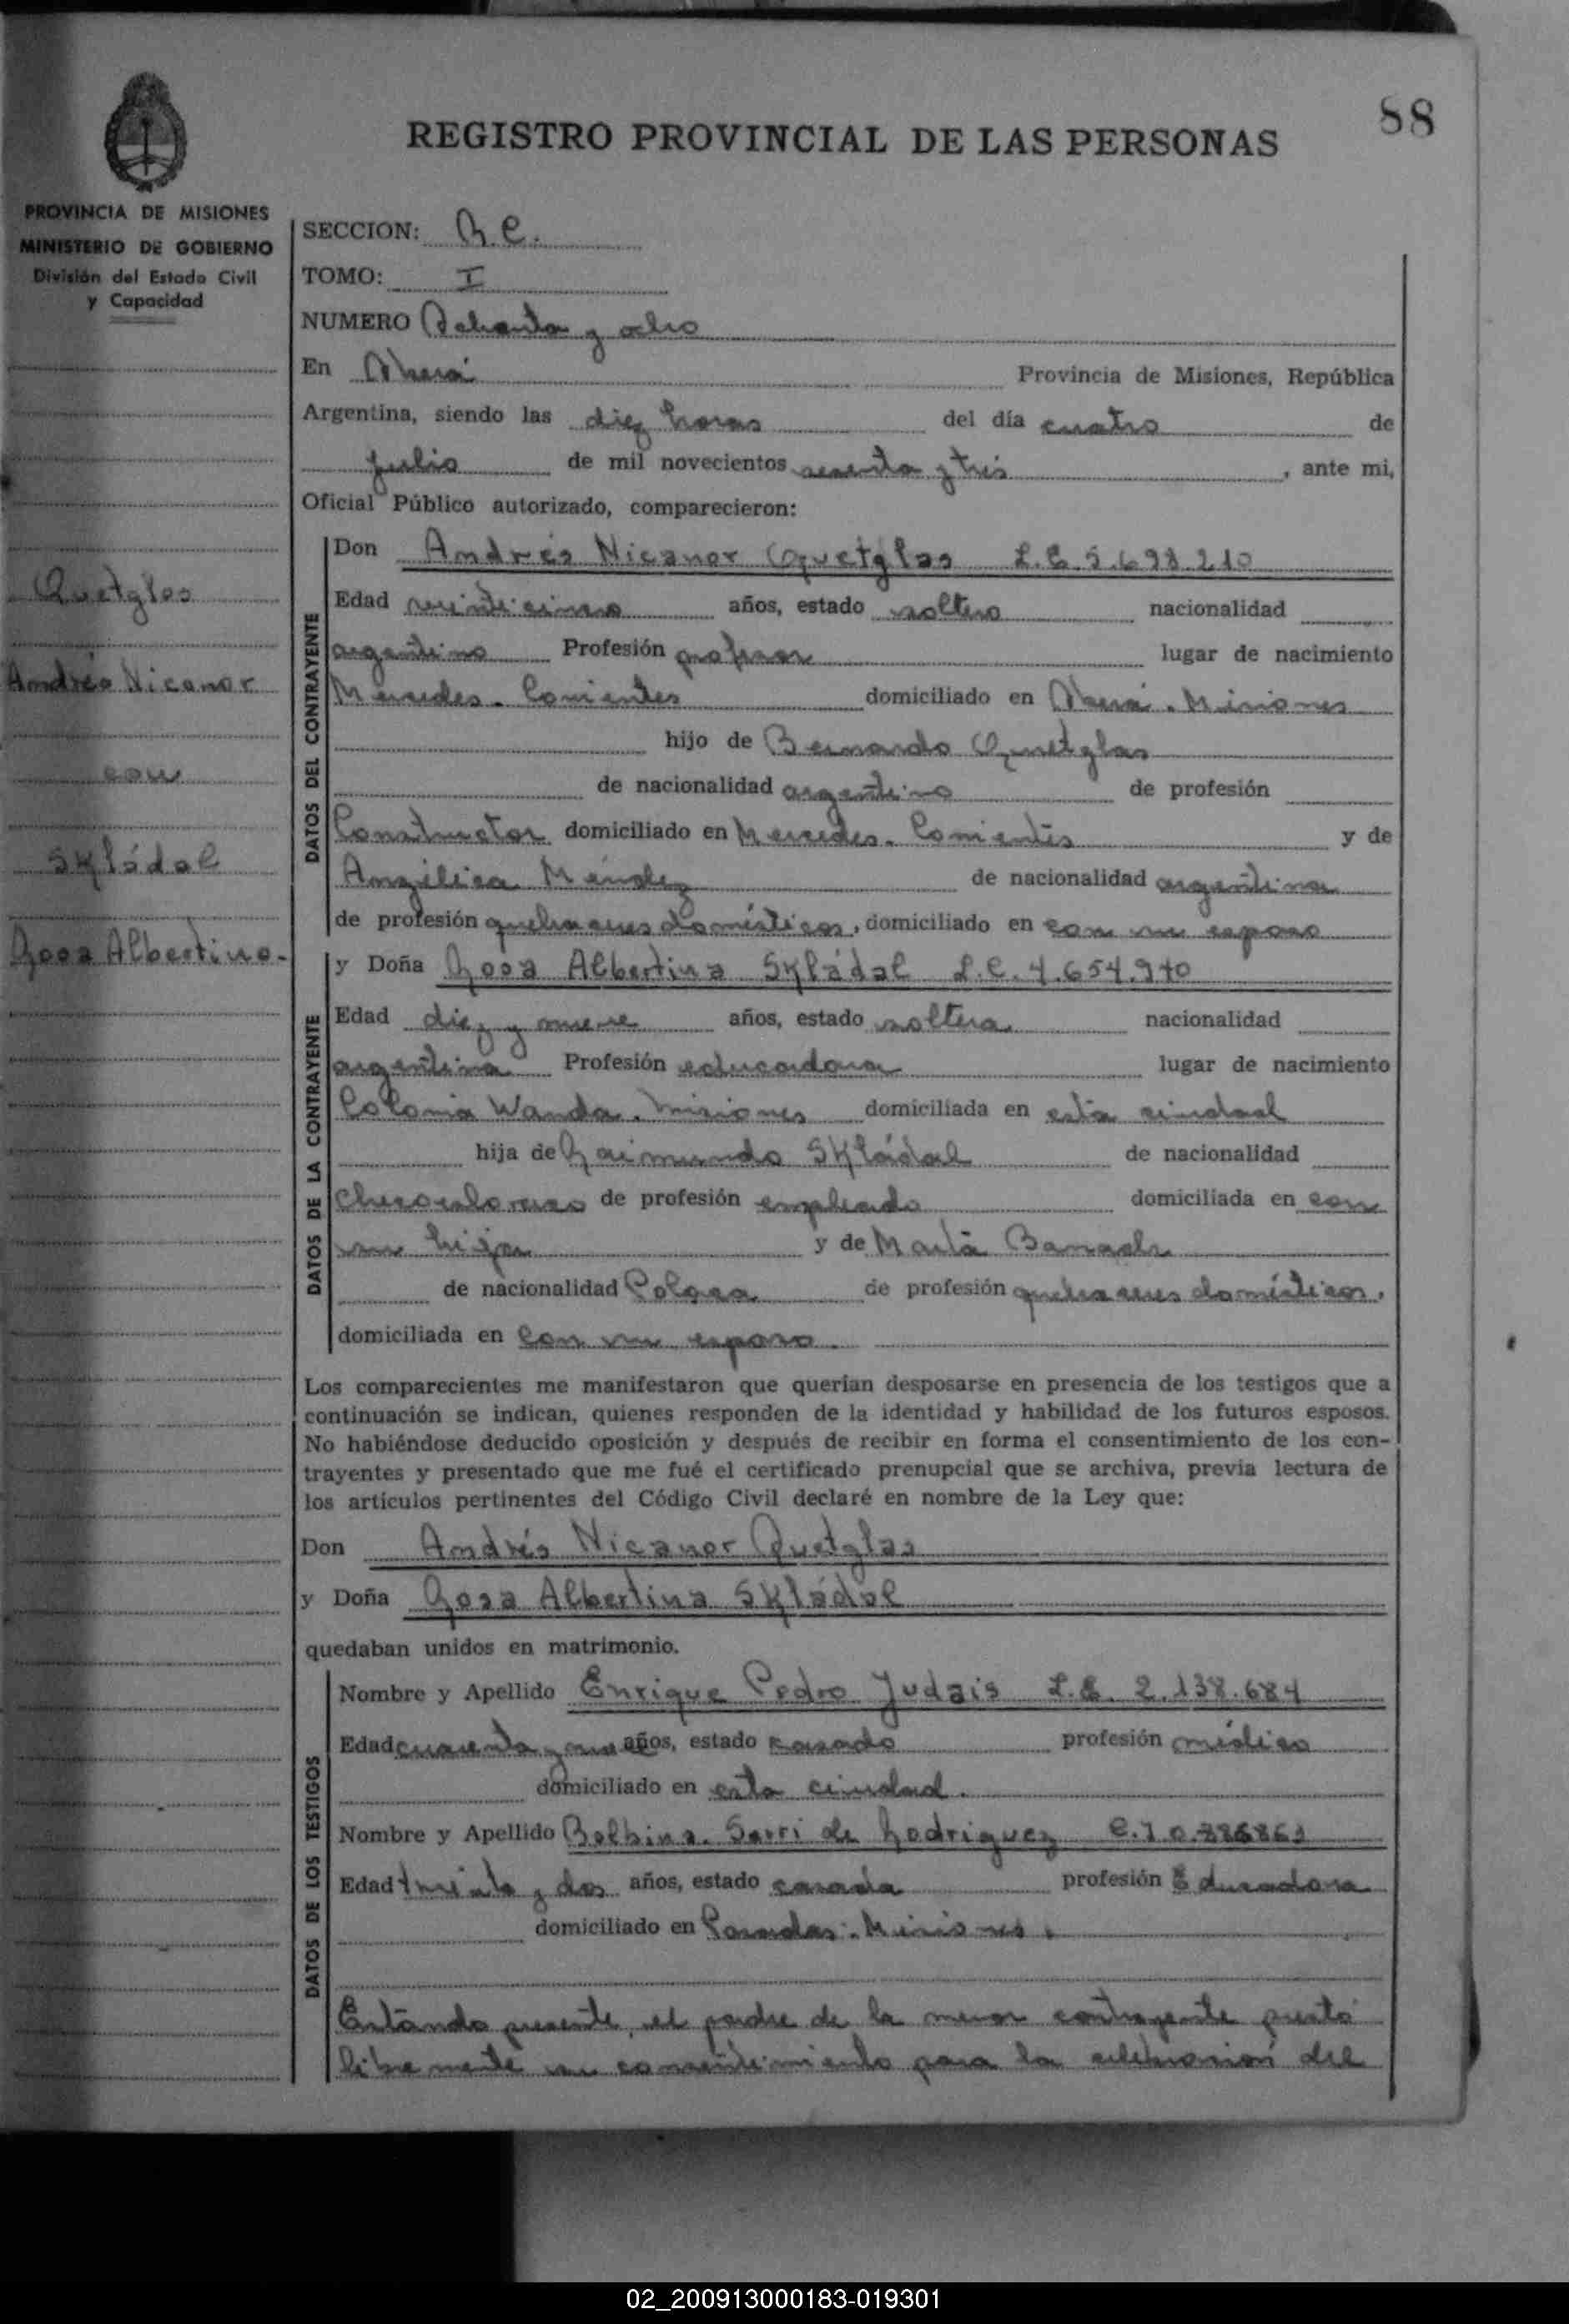 88
REGISTRO PROVINCIAL DE LAS PERSONAS
PROVINCIA DE MISIONES
MINISTERIO DE GOBIERNO
División del Estado Civil
y Capacidad
Quetglas
Andrés Nicanor
con
Skládal
Rosa Albertina.-
SECCION: R.C.
TOMO: I
NUMERO Ochenta y ocho
En Oberá Provincia de Misiones, República
Argentina, siendo las diez horas del día cuatro de
julio de mil novecientos sesenta y tres, ante mi,
Oficial Público autorizado, comparecieron:
DATOS DEL CONTRAYENTE
Don Andrés Nicanor Quetglas L.E. 5.698.210
Edad veinticinco años, estado soltero nacionalidad
argentino Profesión profesor lugar de nacimiento
Mercedes. Corrientes domiciliado en Oberá. Misiones
hijo de Bernardo Quetglas
de nacionalidad argentino de profesión
Constructor domiciliado en Mercedes. Corrientes y de
Angélica Méndez de nacionalidad argentina
de profesión quehaceres domésticos, domiciliado en con su esposo
DATOS DE LA CONTRAYENTE
y Doña Rosa Albertina Skládal L.C. 4.654.940
Edad diez y nueve años, estado soltera nacionalidad
argentina Profesión educadora lugar de nacimiento
Colonia Wanda. Misiones domiciliada en esta ciudad
hija de Raimundo Skládal de nacionalidad
checoslovaco de profesión empleado domiciliada en con
su hija y de Marta Banach
de nacionalidad Polaca de profesión quehaceres domésticos,
domiciliada en con su esposo.
Los comparecientes me manifestaron que querían desposarse en presencia de los testigos que a
continuación se indican, quienes responden de la identidad y habilidad de los futuros esposos.
No habiéndose deducido oposición y después de recibir en forma el consentimiento de los con-
trayentes y presentado que me fué el certificado prenupcial que se archiva, previa lectura de
los artículos pertinentes del Código Civil declaré en nombre de la Ley que:
Don Andrés Nicanor Quetglas
y Doña Rosa Albertina Skládal
quedaban unidos en matrimonio.
DATOS DE LOS TESTIGOS
Nombre y Apellido Enrique Pedro Judais L.E. 2.138.684
Edad cuarenta y nueve años, estado casado profesión médico
domiciliado en esta ciudad.
Nombre y Apellido Balbina Sarri de Rodriguez
Edad treinta y dos años, estado casada profesión Educadora
domiciliado en Posadas. Misiones.
Estando presente, el padre de la menor contrayente prestó
libremente su consentimiento para la celebración del
02_200913000183-019301